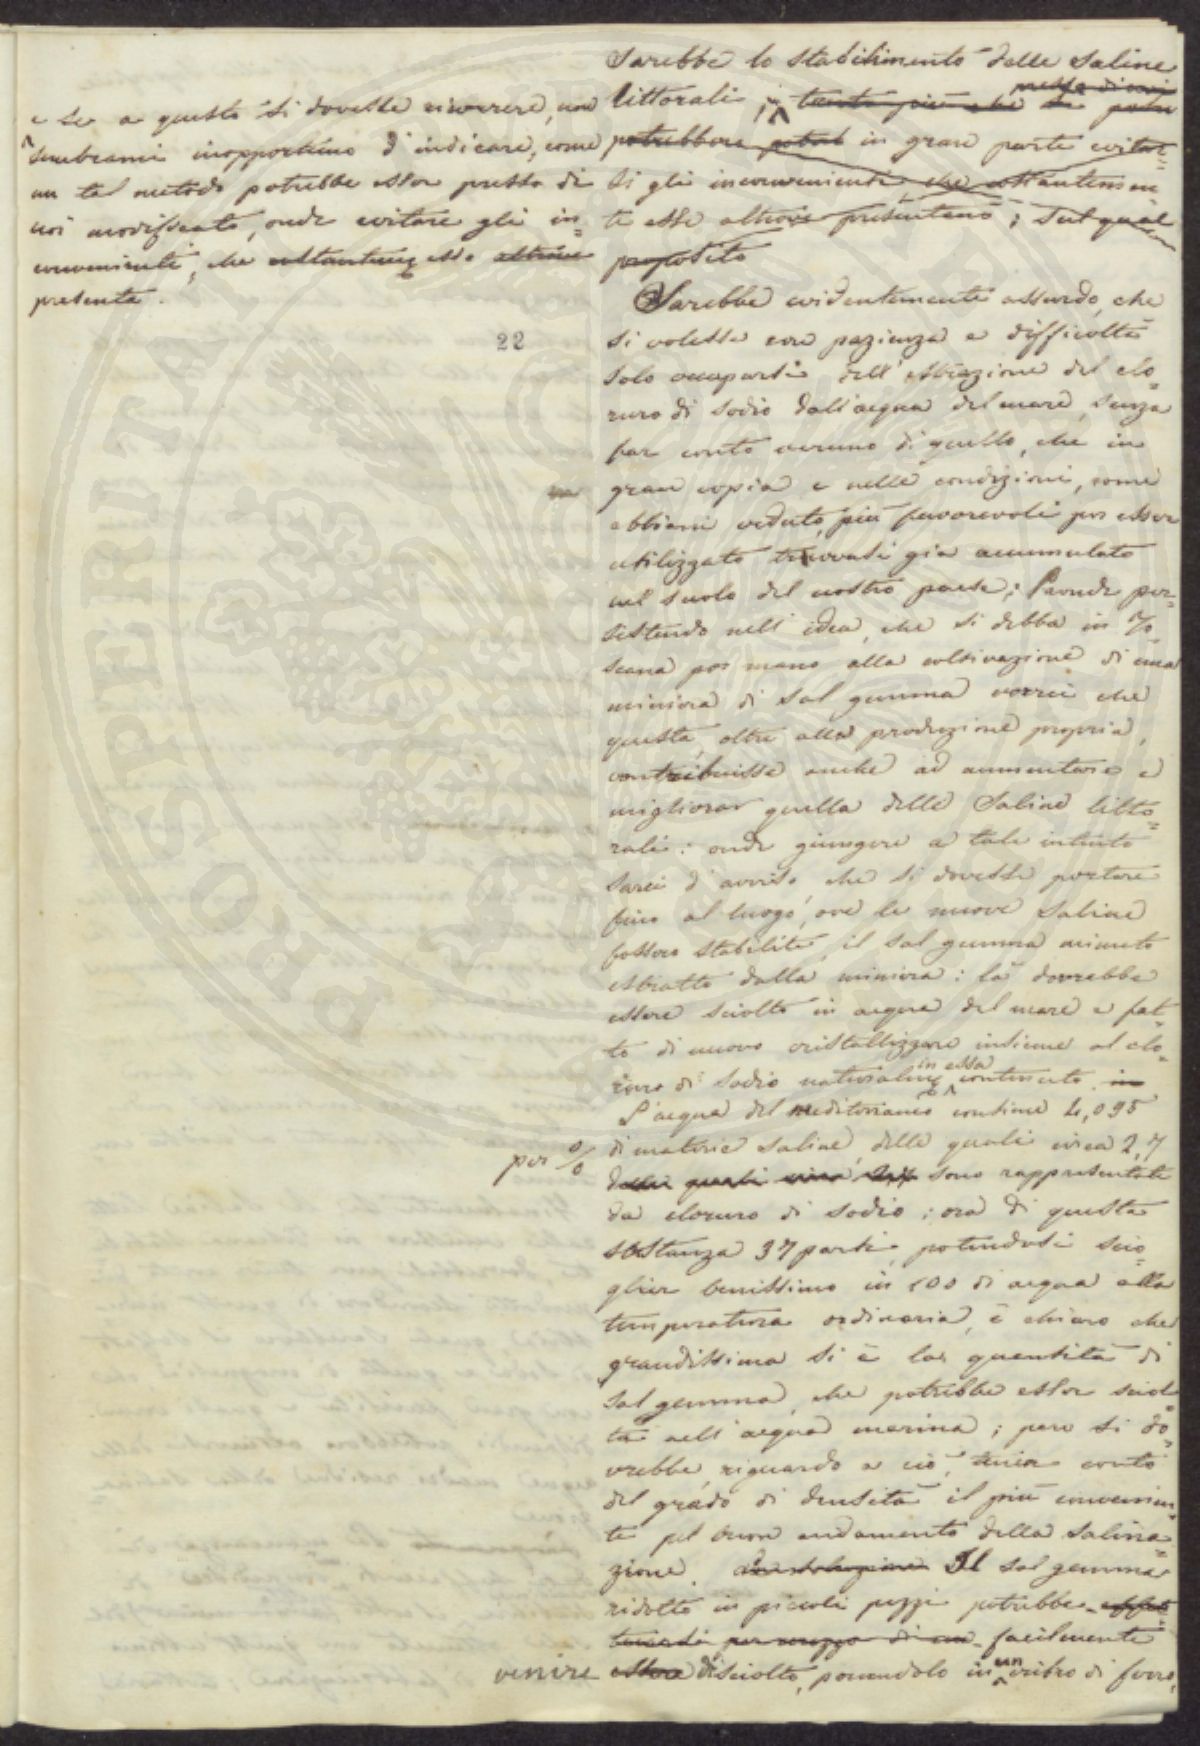 Sarebbe lo stabilimento delle Saline
littorali; tanto più che presso di noi
potrebbero in gran parte evitar=
si gli inconvenienti che costantemen
te esse altrove presentano; sul qual
proposito
e se a questo si dovesse ricorrere, non
sembrami inopportuno d'indicare, come
un tal metodo potrebbe esser presso di
noi modificato, onde evitare gli in=
convenienti, che costantemte esso altrove
presenta.
22
Sarebbe evidentemente assurdo, che
si volesse con pazienza e difficoltà
solo occuparsi dell'estrazione del clo=
ruro di sodio dall'acqua del mare, senza
far conto veruno di quello, che in
gran copia e nelle condizioni, come
abbiam veduto, più favorevoli per esser
utilizzato trovasi già accumulato
nel suolo del nostro paese; Laonde per=
sistendo nell'idea, che si debba in To=
scana por mano alla coltivazione di una
miniera di sal gemma vorrei che
questa, oltre alla produzione propria,
contribuisse anche ad aumentare e
migliorar quella delle Saline litto=
rali: onde giungere a tale intento
sarei d'avviso, che si dovesse portare
fino al luogo, ove le nuove Saline
fossero stabilite, il sal gemma minuto
estratto dalla miniera: là dovrebbe
essere sciolto in acqua del mare e fat=
to di nuovo cristallizzare insieme al clo=
ruro di sodio naturalmte in essa contenuto. in
L'acqua del mediterraneo contiene 4,095
per % di materie saline, delle quali circa 2,7
delle quali circa 2,7 sono rappresentate
da cloruro di sodio; ora di questa
sostanza 37 parti, potendosi scio=
glier benissimo in 100 di acqua alla
temperatura ordinaria, è chiaro che
grandissima si è la quantità di
sal gemma, che potrebbe esser sciol=
ta nell'acqua marina; però si do=
vrebbe, riguardo a ciò, tener conto
del grado di densità il più convenien=
te pel buon andamento della salina=
zione. Il sal gemma
ridotto in piccoli pezzi potrebbe effet=
tuarsi per mezzo di un facilmente
venire essere disciolto, ponendolo in un cribro di ferro,
PROSPERITATI